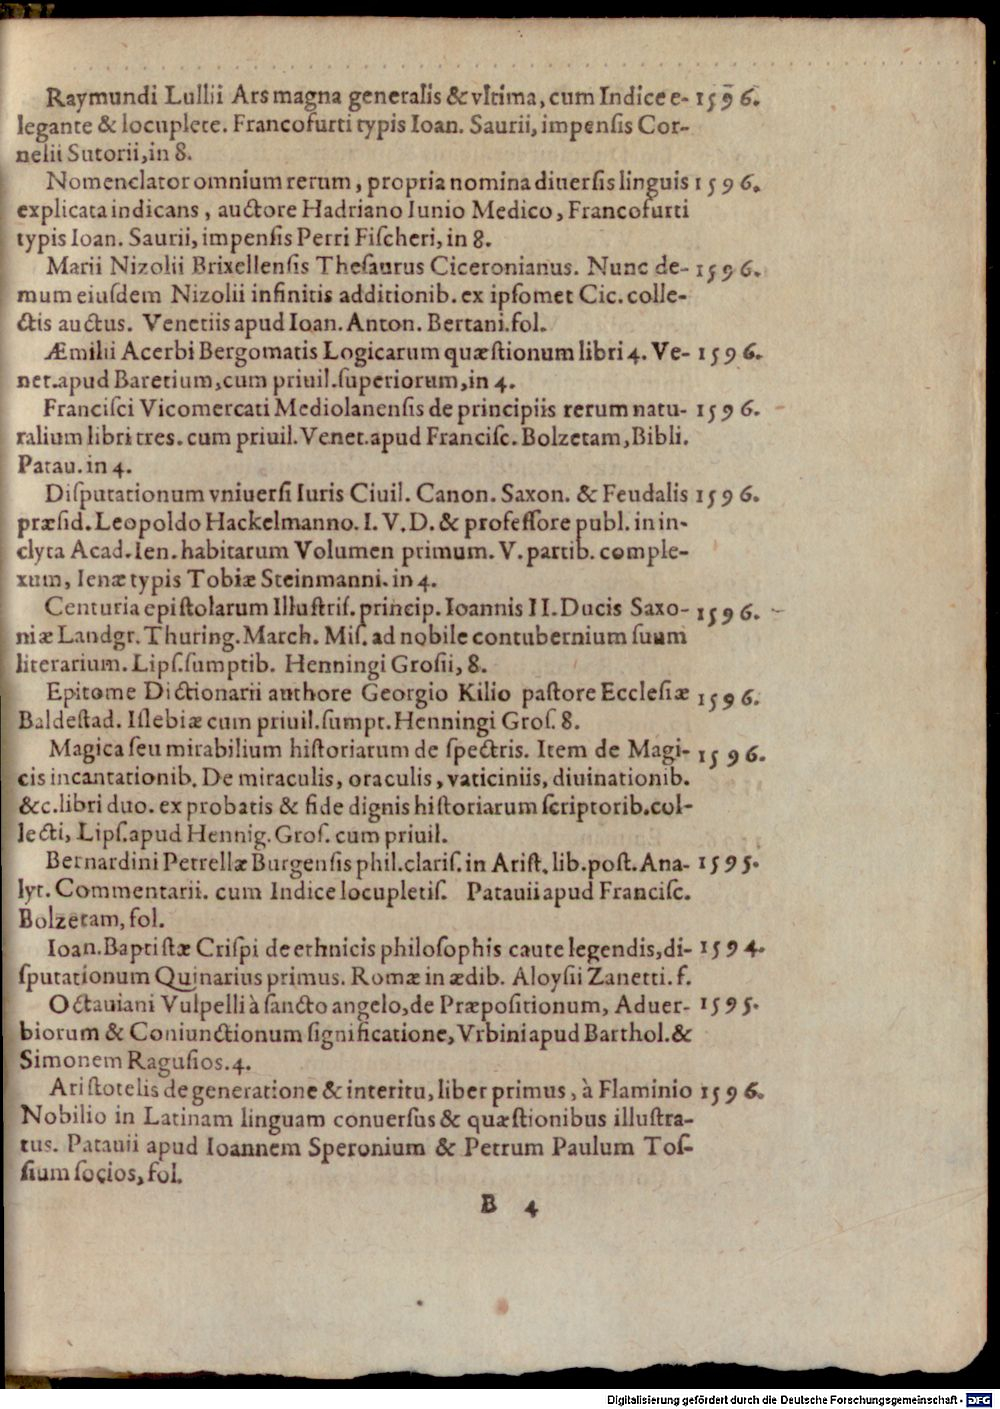 Raymundi Lullii Ars magna generalis & vltima, cum Indice e- 1596.
legante & locuplete. Francofurti typis Ioan. Saurii, impensis Cor-
nelii Sutorii, in 8.
Nomenclator omnium rerum, propria nomina diuersis linguis 1596.
explicata indicans, auctore Hadriano Iunio Medico, Francofurti
typis Ioan. Saurii, impensis Petri Fischeri, in 8.
Marii Nizolii Brixellensis Thesaurus Ciceronianus. Nunc de- 1596.
mum eiusdem Nizolii infinitis additionib. ex ipsomet Cic. colle-
ctis auctus. Venetiis apud Ioan. Anton. Bertani. fol.
Æmilii Acerbi Bergomatis Logicarum quæstionum libri 4. Ve- 1596.
net. apud Baretium, cum priuil. superiorum, in 4.
Francisci Vicomercati Mediolanensis de principiis rerum natu- 1596.
ralium libri tres. cum priuil. Venet. apud Francisc. Bolzetam, Bibli.
Patau. in 4.
Disputationum vniuersi Iuris Ciuil. Canon. Saxon. & Feudalis 1596.
præsid. Leopoldo Hackelmanno. I. V. D. & professore publ. in in-
clyta Acad. Ien. habitarum Volumen primum. V. partib. comple-
xum, Ienæ typis Tobiæ Steinmanni. in 4.
Centuria epistolarum Illustris. princip. Ioannis II. Ducis Saxo- 1596.
niæ Landgr. Thuring. March. Mis. ad nobile contubernium suum
literarium. Lips. sumptib. Henningi Grosii, 8.
Epitome Dictionarii authore Georgio Kilio pastore Ecclesiæ 1596.
Baldestad. Islebiæ cum priuil. sumpt. Henningi Gros. 8.
Magica seu mirabilium historiarum de spectris. Item de Magi- 1596.
cis incantationib. De miraculis, oraculis, vaticiniis, diuinationib.
&c. libri duo. ex probatis & fide dignis historiarum scriptorib. col-
lecti, Lips. apud Hennig. Gros. cum priuil.
Bernardini Petrellæ Burgensis phil. claris. in Arist. lib. post. Ana- 1595.
lyt. Commentarii. cum Indice locupletis. Patauii apud Francisc.
Bolzetam, fol.
Ioan. Baptistæ Crispi de ethnicis philosophis caute legendis, di- 1594.
sputationum Quinarius primus. Romæ in ædib. Aloysii Zanetti. f.
Octauiani Vulpelli à sancto angelo, de Præpositionum, Aduer- 1595.
biorum & Coniunctionum significatione, Vrbini apud Barthol. &
Simonem Ragusios. 4.
Aristotelis de generatione & interitu, liber primus, à Flaminio 1596.
Nobilio in Latinam linguam conuersus & quæstionibus illustra-
tus. Patauii apud Ioannem Speronium & Petrum Paulum Tos-
sium socios, fol.
B 4
Digitalisierung gefördert durch die Deutsche Forschungsgemeinschaft - DFG